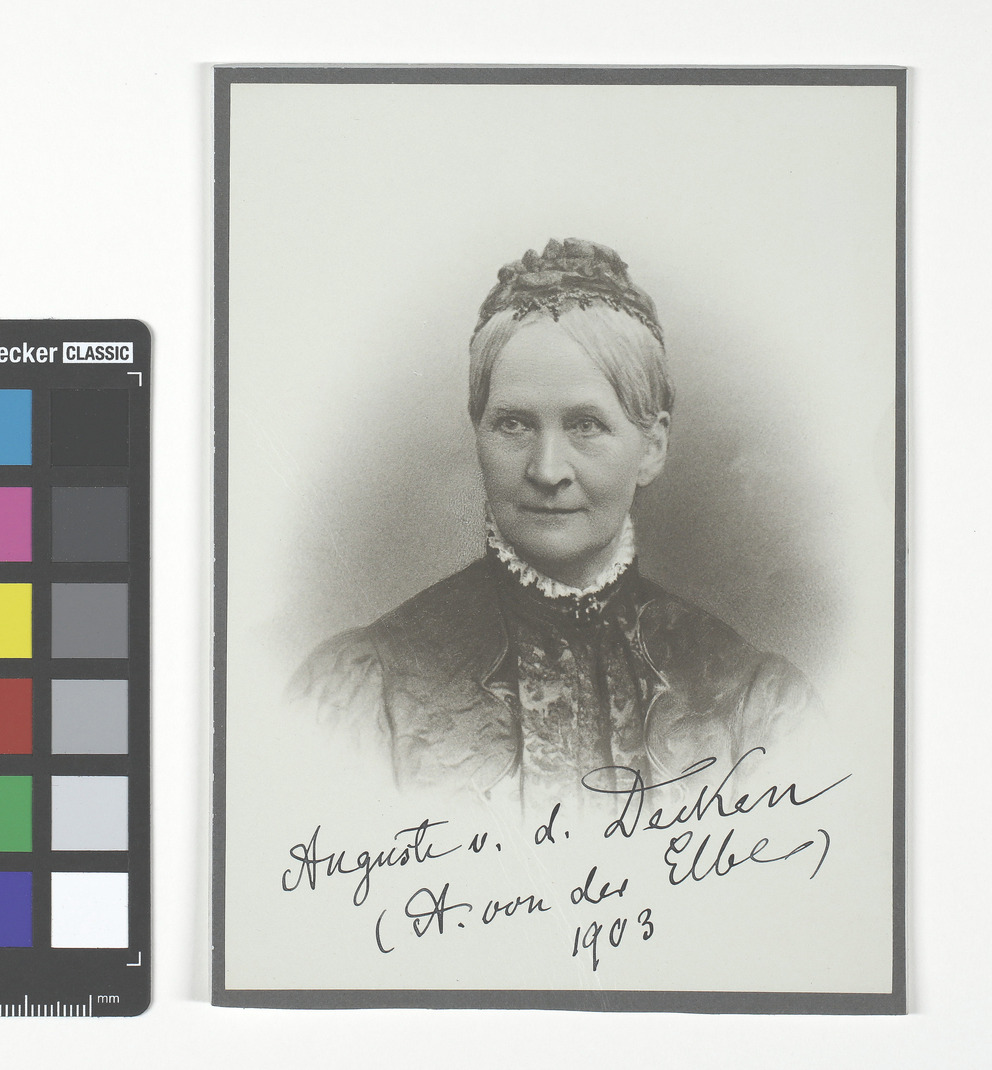 ecker CLASSIC
mm
Auguste v. d. Decken
(A. von der Elbe)
1903